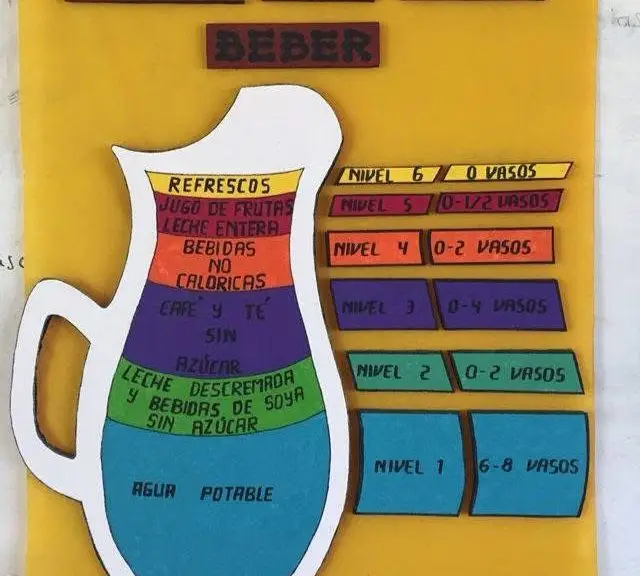 BEBER
REFRESCOS
NIVEL 6
0 VASOS
JUGO DE FRUTAS
LECHE ENTERA
NIVEL 5
0-1/2 VASOS
BEBIDAS
NO
CALORICAS
NIVEL 4
0-2 VASOS
CAFÉ Y TÉ
SIN
AZÚCAR
NIVEL 3
0-4 VASOS
LECHE DESCREMADA
Y BEBIDAS DE SOYA
SIN AZÚCAR
NIVEL 2
0-2 VASOS
AGUA POTABLE
NIVEL 1
6-8 VASOS